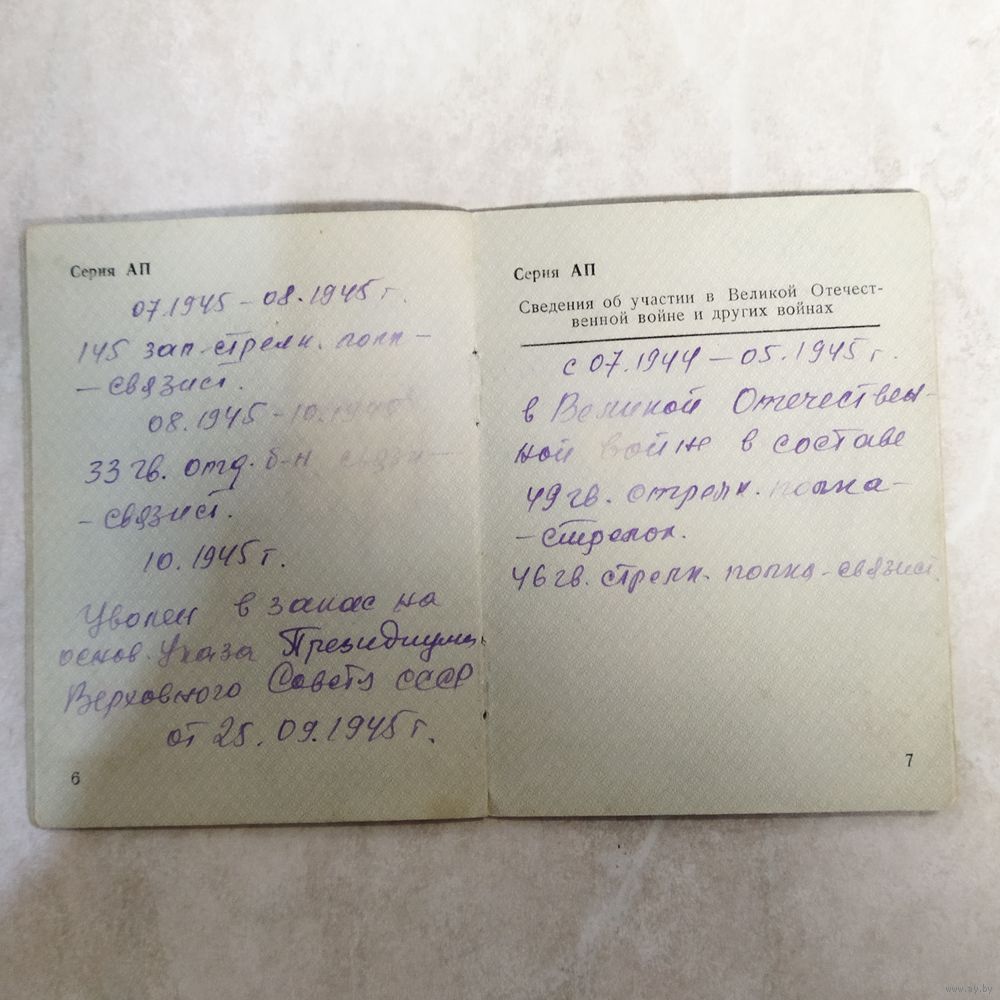 Серия АП
07.1945 – 08.1945 г.
145 зап. стрелк. полк –
– связист.
08.1945 – 10.1945
33 гв. отд. б-н связи –
– связист.
10.1945 г.
Уволен в запас на
основ. Указа Президиума
Верховного Совета СССР
от 25.09.1945 г.
6
Серия АП
Сведения об участии в Великой Отечест-
венной войне и других войнах
с 07.1944 – 05.1945 г.
в Великой Отечествен-
ной войне в составе
49 гв. стрелк. полка –
– стрелок.
46 гв. стрелк. полка – связист.
7
www.ay.by